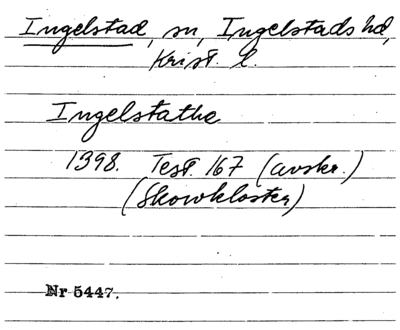 Ingelstad, sn, Ingelstads hd,
Krist. l.
Ingelstathe
1398. Test. 167 (avskr.)
(Skowkloster)
Nr 5447.